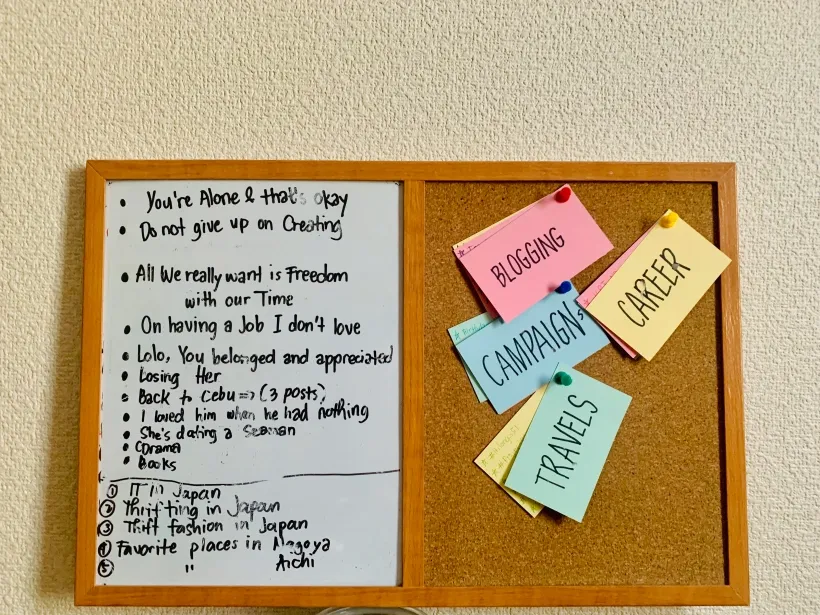 • You're Alone & that's okay
• Do not give up on Creating
• All We really want is Freedom
with our Time
• On having a Job I don't love
• Lolo, You belonged and appreciated
• Losing Her
• Back to Cebu => (3 posts)
• I loved him when he had nothing
• She's dating a Seaman
• CDrama
• Books
① IT in Japan
② Thrifting in Japan
③ Thift fashion in Japan
④ Favorite places in Nagoya
⑤ " Aichi
BLOGGING
CAREER
CAMPAIGNs
TRAVELS